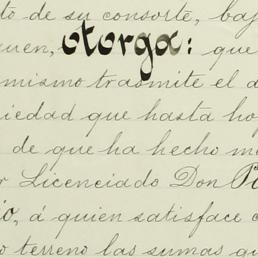 to de su consorte, baj
uen, otorga: que
mismo trasmite el d
iedad que hasta ho
de que ha hecho m
r Licenciado Don
io, á quien satisface
o terreno las sumas qu